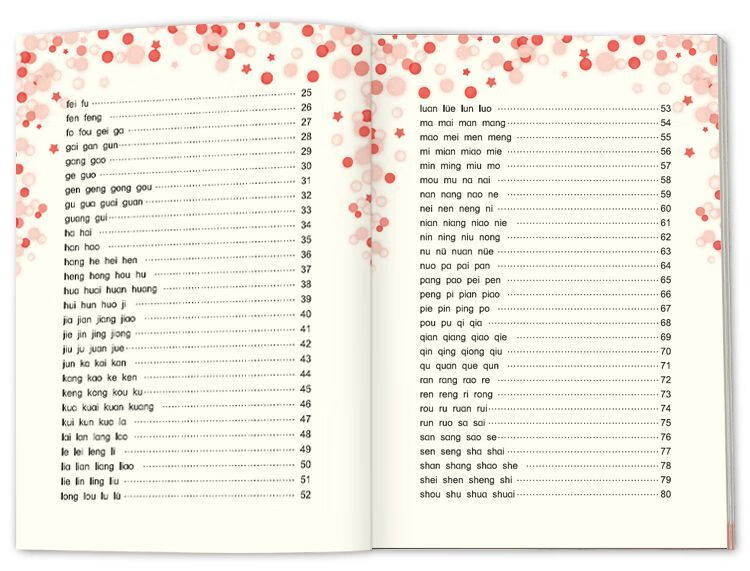 fei fu 25
fen feng 26
fo fou gei ga 27
gai gan gun 28
gang gao 29
ge guo 30
gen geng gong gou 31
gu gua guai guan 32
guang gui 33
ha hai 34
han hao 35
hang he hei hen 36
heng hong hou hu 37
hua huai huan huang 38
hui hun huo ji 39
jia jian jiang jiao 40
jie jin jing jiong 41
jiu ju juan jue 42
jun ka kai kan 43
kang kao ke ken 44
keng kong kou ku 45
kua kuai kuan kuang 46
kui kun kuo la 47
lai lan lang lao 48
le lei leng li 49
lia lian liang liao 50
lie lin ling liu 51
long lou lu lü 52
luan lüe lun luo 53
ma mai man mang 54
mao mei men meng 55
mi mian miao mie 56
min ming miu mo 57
mou mu na nai 58
nan nang nao ne 59
nei nen neng ni 60
nian niang niao nie 61
nin ning niu nong 62
nu nü nuan nüe 63
nuo pa pai pan 64
pang pao pei pen 65
peng pi pian piao 66
pie pin ping po 67
pou pu qi qia 68
qian qiang qiao qie 69
qin qing qiong qiu 70
qu quan que qun 71
ran rang rao re 72
ren reng ri rong 73
rou ru ruan rui 74
run ruo sa sai 75
san sang sao se 76
sen seng sha shai 77
shan shang shao she 78
shei shen sheng shi 79
shou shu shua shuai 80